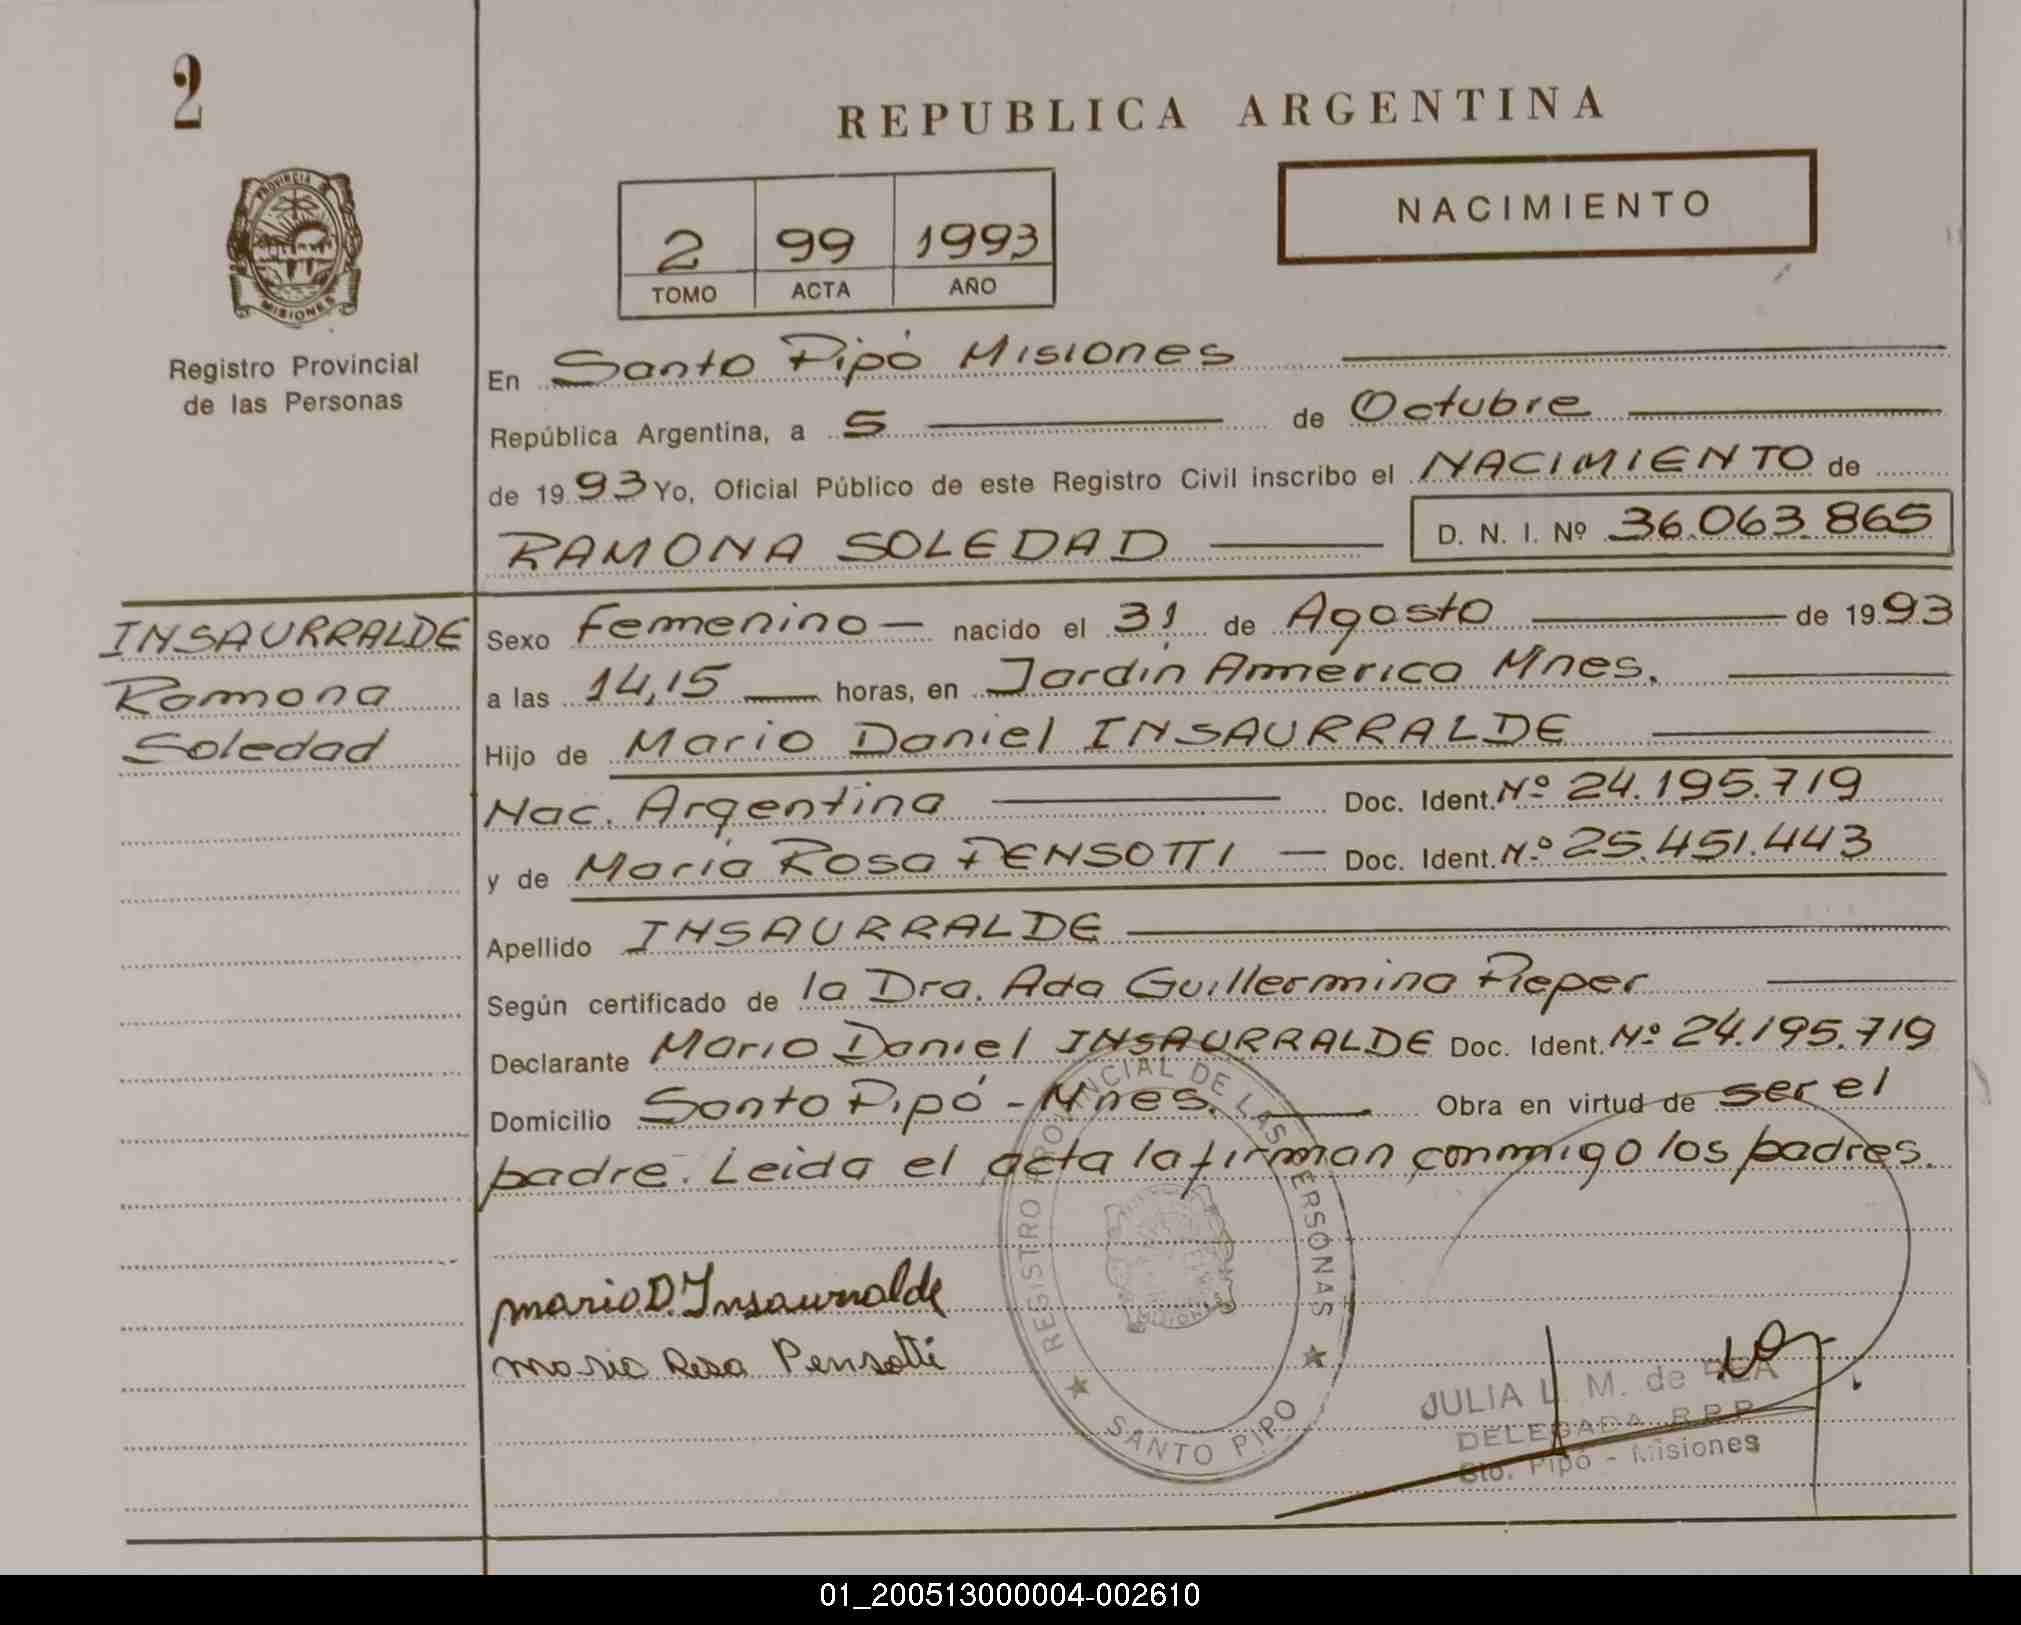 2
REPUBLICA ARGENTINA
PROVINCIA
MISIONES
Registro Provincial
de las Personas
2 99 1993
TOMO ACTA AÑO
NACIMIENTO
En Santo Pipó Misiones
República Argentina, a 5 de Octubre
de 1993 Yo, Oficial Público de este Registro Civil inscribo el NACIMIENTO de
RAMONA SOLEDAD D. N. I. Nº 36.063.865
INSAURRALDE
Ramona
Soledad
Sexo Femenino — nacido el 31 de Agosto de 1993
a las 14,15 horas, en Jardín America Mnes.
Hijo de Mario Daniel INSAURRALDE
Nac. Argentina Doc. Ident. Nº 24.195.719
y de María Rosa PENSOTTI — Doc. Ident. Nº 25.451.443
Apellido INSAURRALDE
Según certificado de la Dra. Ada Guillermina Pieper
Declarante Mario Daniel INSAURRALDE Doc. Ident. Nº 24.195.719
Domicilio Santo Pipó - Mnes. Obra en virtud de ser el
padre. Leida el acta la firman conmigo los padres.
mario D. Insaurralde
maria Rosa Pensotti
REGISTRO PROVINCIAL DE LAS PERSONAS
MISIONES
SANTO PIPO
JULIA L. M. de REA
DELEGADA R.P.P.
Sto. Pipó - Misiones
01_200513000004-002610